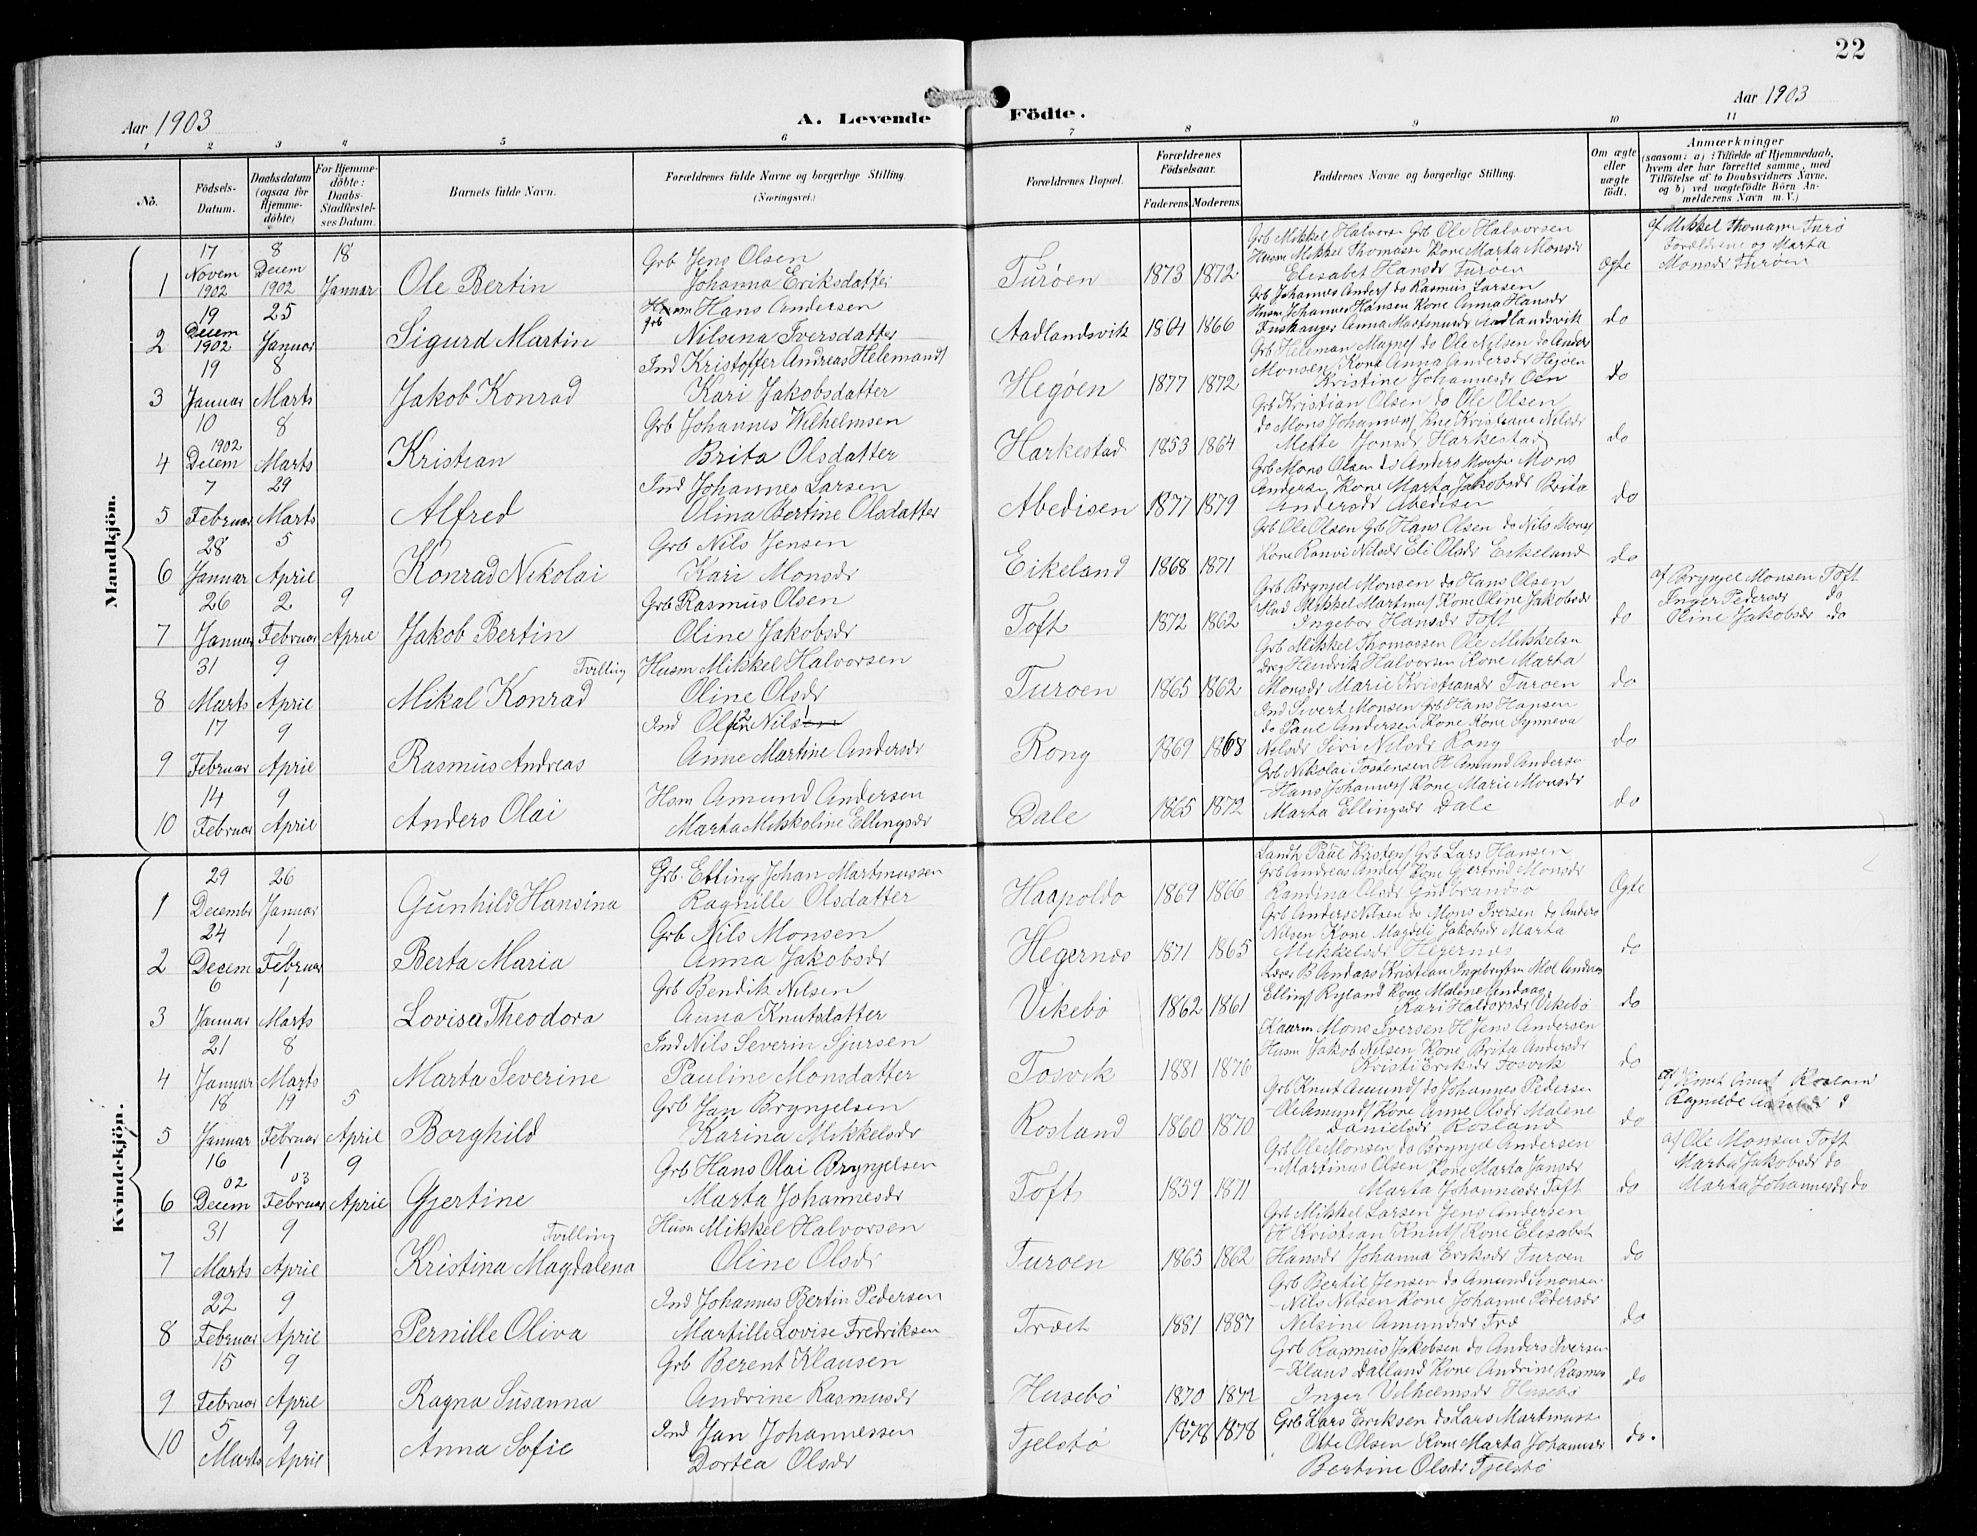 22
Aar 1903
A. Levende Födte.
Aar 1903
1 2 3 4 5 6 7 8 9 10 11
No.
Födsels-Datum.
Daabsdatum (ogsaa for Hjemme-döbte)
For Hjemme-döbte: Daabs-Stadfestel-ses Datum.
Barnets fulde Navn.
Forældrenes fulde Navne og borgerlige Stilling. (Næringsvei.)
Forældrenes Bopæl.
Forældrenes Födselsaar.
Faderens Moderens
Faddernes Navne og borgerlige Stilling.
Om ægte eller uægte födt.
Anmærkninger
(saasom: a) i Tilfælde af Hjemmedaab, hvem der har forrettet samme, med Tilföielse af to Daabsvidners Navne, og b) ved uægtefödte Börn An-melderens Navn m.V.)
Mandkjön.
17 8 18 Grb Jens Olsen Grb Mikkel Halvorse Grb Ole Halvorsen af Mikkel Thomasse Turø
Novem Decem Husm Mikkel Thomasse Kone Marta Monsdr Forældrene og Marta
1 1902 1902 Januar Ole Bertin Johanna Eriksdatter Turøen 1873 1872 Elisabet Hansdr Turoen ægte Monsdr Turøen
19 25 Husm Grb Hans Andersen Grb Johannes Anders do Rasmus Larsen
Decem Husm Johannes Hansen Kone Anna Hansdr
2 1902 Januar Sigurd Martin Nilsina Iversdatter Aadlandsvik 1864 1866 Anna Martinusdr Aadlandsvik do
19 8 Ind Kristoffer Andreas Helemands Grb Heleman Magnes do Ole Nilsen do Anders
3 Januar Marts Jakob Konrad Kari Jakobsdatter Hegøen 1877 1872 Monsen Kone Anna Andersdr Hegøen Kristine Johannesdr Oen do
10 8 Grb Johannes Wilhelmsen Grb Kristian Olsen do Ole Olsen
1902 do Mons Johannes Kristiane Nilsdr
4 Decem Marts Kristian Brita Olsdatter Harkestad 1853 1864 Mette Jonsdr Harkestad do
7 29 Ind Johannes Larsen Grb Mons Olsen do Anders Mons
5 Februar Marts Alfred Olina Bertine Olsdatter Abedisen 1877 1879 Anderse Kone Marta Jakobsdr Brita Andersdr Abedisen do
28 5 Grb Nils Jensen Grb Ole Olsen Grb Hans Olsen do Nils Mons
6 Januar April Konrad Nikolai Kari Monsdr Eikeland 1868 1871 Kone Ranvei Nilsdr Eli Olsdr Eikeland do
26 2 9 Grb Rasmus Olsen Grb Brynjel Monsen do Hans Olsen af Brynjel Monsen Toft
Mikkel Martinus Kone Oline Jakobsdr Inger Pedersdr do
7 Januar Februar April Jakob Bertin Oline Jakobsdr Toft 1872 1862 Ingebor Hansdr Toft do Jakobsdr do
31 9 Tvilling Husm Mikkel Halvorsen Grb Mikkel Thomassen Ole Mikkelse
Hendrik Halvorsen Kone Marta
8 Marts April Mikal Konrad Oline Olsdr Turoen 1865 1862 Monsdr Marie Kristiansdr Turoen do
17 9 Ind Nils Ind Sivert Monsen Grb Hans Hansen
do Paul Andersen Kone Synneva
9 Februar April Rasmus Andreas Anne Martine Andersdr Rong 1869 1868 Nilsdr Siri Nilsdr Rong do
14 9 Hsm Amund Andersen Grb Nikolai Tostensen H Amund Anderse
Hans Johannes Kone Marie Monsdr
10 Februar April Anders Olai Marta Mikkoline Ellingsdr Dale 1865 1872 Marta Ellingsdr Dale do
Kvindekjön.
29 26 Grb. Elling Johan Martinussen Landh Paul Kristens Grb Lars Hansen
Grb Andreas Anders Kone Gjertrud Monsdr
1 Decembr Januar Gunhild Hansina Ragnille Olsdatter Haapoldo 1869 1866 Randina Olsdr Gudbrandso Ægte
24 1 Grb Nils Monsen Grb Anders Nilsen do Mons Iversen do Anders
Nilsen Kone Magdeli Jakobsdr Marta
2 Decem Februar Berta Maria Anna Jakobsdr Hegernes 1871 1865 Mikkelsdr Hegernes do
6 1 Grb Bendik Nilsen Lærer B Andaas Kristian Ingebrigtsn
3 Januar Marts Lovisa Theodora Anna Knutsdatter Vikebø 1862 1861 Ellings Ryland Kone Malene Andaas Kari Halvorsdr Vikebø do
21 8 Ind Nils Severin Sjursen Kaarm Mons Iversen H Jens Andersen
Husm Jakob Nilsen Kone Brita Andersdr
4 Januar Marts Marta Severine Pauline Monsdatter Fosvik 1881 1876 Kristi Eriksdr Fosvik do
18 19 5 Grb Jan Brynjelsen Grb Knut Amunds do Johannes Pederse af Knut Amus Rosland
Ole Amunds Kone Anne Olsdr Malene Ragnilde
5 Januar Februar April Borghild Karina Mikkelsdr Rosland 1860 1870 Danielsdr Rosland do
16 1 9 Grb Hans Olai Brynjelsen Grb Ole Monsen do Brynjel Andersen af Ole Monsen Toft
02 03 Martinus Olsen Kone Marta Jansdr Marta Jakobsdr do
6 Decem Februar April Gjertine Marta Johannesdr Toft 1859 1871 Marta Johannesdr Toft do Marta Johannesdr do
31 9 Tvilling Husm Mikkel Halvorsen Grb Mikkel Larsen Jens Andersen
H Kristian Knuts Kone Elisabet
7 Marts April Kristina Magdalena Oline Olsdr Turoen 1865 1862 Hansdr Johanna Eriksdr Turoen do
22 9 Ind Johannes Bertin Pedersen Grb Bertil Jensen do Amund Simonsen
Nils Nilsen Kone Johanne Pedersdr
8 Februar April Pernille Oliva Martille Lovise Fredriksen Træet 1881 1887 Nilsine Amundsdr Træ do
15 9 Grb Berent Klausen Grb Rasmus Jakobsen do Anders Iversen
Klaus Dalland Kone Andrine Rasmus
9 Februar April Ragna Susanna Andrine Rasmusdr Husebø 1870 1872 Inger Vilhelmsdr Husebø do
5 9 Ind Jan Johannessen Grb Lars Eriksen do Lars Martinuss
10 Marts April Anna Sofie Dortea Olsdr Tjelstø 1878 1878 Otte Olsen Kone Marta Johannesdr do.
Bertine Olsdr Tjelstø